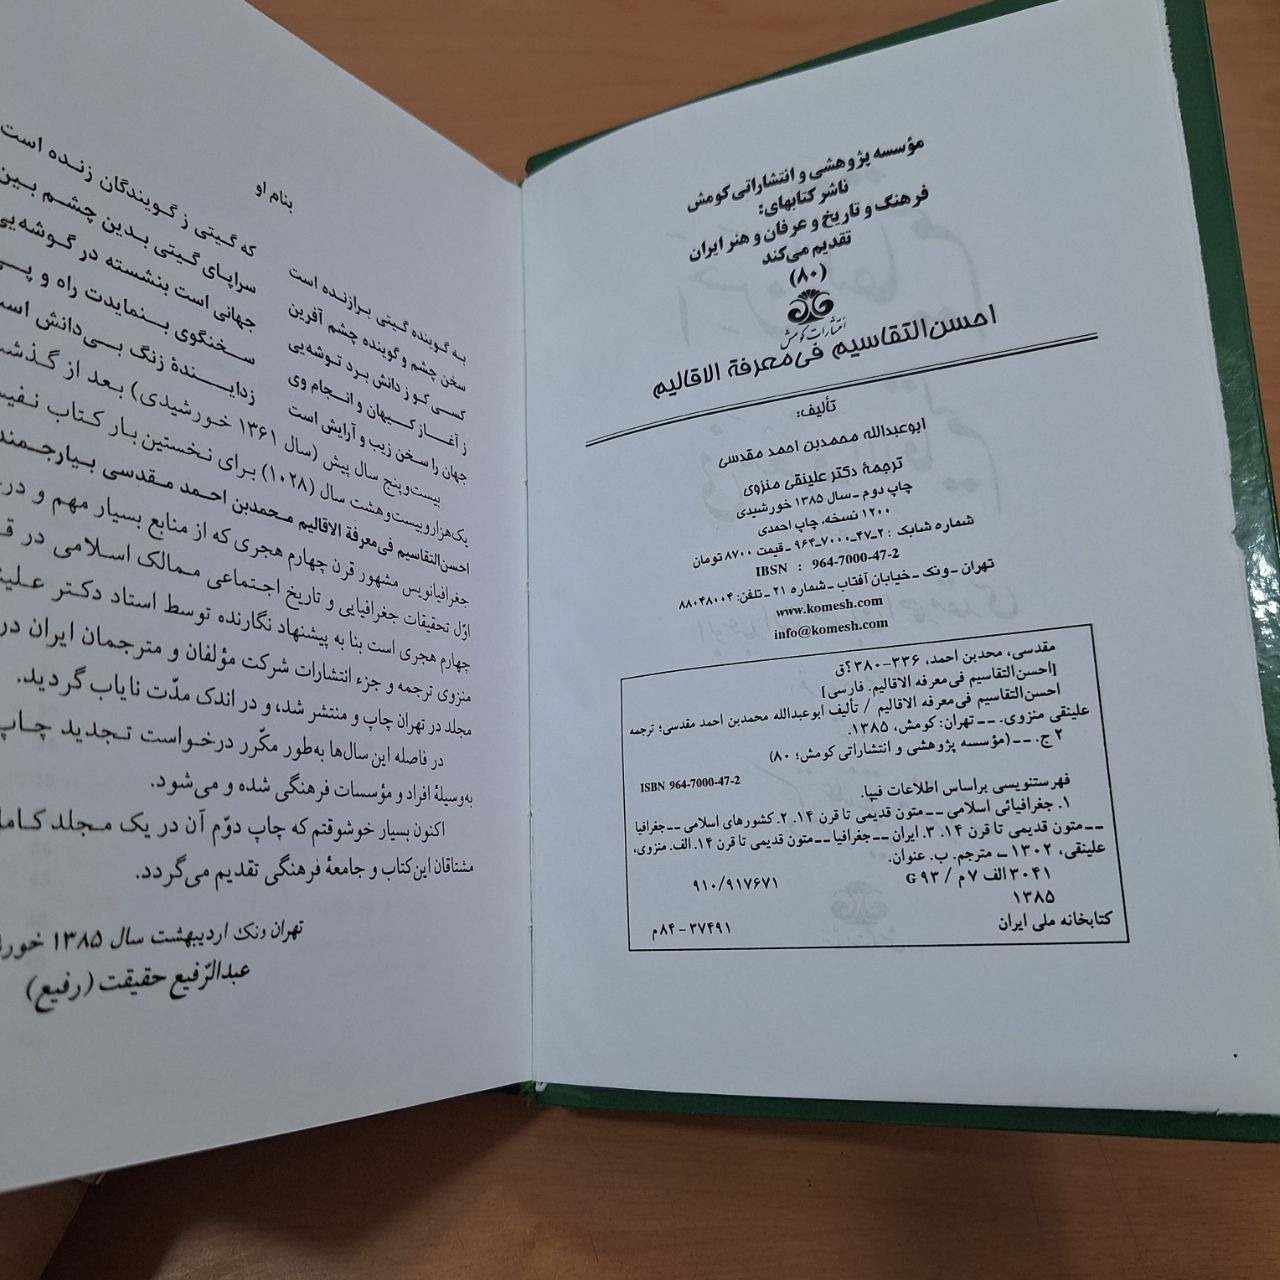 مؤسسه پژوهشی و انتشاراتی کومش
ناشر کتابهای:
فرهنگ و تاریخ و عرفان و هنر ایران
تقدیم می‌کند
(۸۰)
انتشارات کومش
احسن‌التقاسیم فی‌معرفة الاقالیم
تألیف:
ابوعبدالله محمدبن احمد مقدسی
ترجمهٔ دکتر علینقی منزوی
چاپ دوم ـ سال ۱۳۸۵ خورشیدی
۱۲۰۰ نسخه، چاپ احمدی
شماره شابک : ۲ـ۴۷ـ۷۰۰۰ـ۹۶۴ ـ قیمت ۸۷۰۰ تومان
IBSN : 964-7000-47-2
تهران ـ ونک ـ خیابان آفتاب ـ شماره ۲۱ ـ تلفن: ۸۸۰۴۸۰۰۴
www.komesh.com
info@komesh.com
مقدسی، محدبن احمد، ۳۳۶-۳۸۰؟ق
[احسن‌التقاسیم فی‌معرفه الاقالیم. فارسی]
احسن‌التقاسیم فی‌معرفه الاقالیم / تألیف ابوعبدالله محمدبن احمد مقدسی؛ ترجمه
علینقی منزوی. ــ تهران: کومش، ۱۳۸۵.
۲ ج. ــ (مؤسسه پژوهشی و انتشاراتی کومش؛ ۸۰)
ISBN 964-7000-47-2
فهرستنویسی براساس اطلاعات فیپا.
۱. جغرافیائی اسلامی ــ متون قدیمی تا قرن ۱۴. ۲. کشورهای اسلامی ــ جغرافیا
ــ متون قدیمی تا قرن ۱۴. ۳. ایران ــ جغرافیا ــ متون قدیمی تا قرن ۱۴. الف. منزوی،
علینقی، ۱۳۰۲ ـ مترجم. ب. عنوان.
۳۰۴۱ الف ۷م / G ۹۳ ۹۱۰/۹۱۷۶۷۱
۱۳۸۵
کتابخانه ملی ایران ۳۷۴۹۱ - ۸۴م
بنام او
به گوینده گیتی برازنده است که گیتی ز گویندگان زنده است
سخن چشم و گوینده چشم آفرین سراپای گیتی بدین چشم بین
کسی کو ز دانش برد توشه‌یی جهانی است بنشسته در گوشه‌یی
ز آغاز کیهان و انجام وی سخنگوی بنمایدت راه و پی
جهان را سخن زیب و آرایش است زدایندهٔ زنگ بی‌دانش
بیست‌وپنج سال پیش (سال ۱۳۶۱ خورشیدی) بعد از
یک‌هزاروبیست‌وهشت سال (۱۰۲۸) برای نخستین بار کتاب
احسن‌التقاسیم فی‌معرفة الاقالیم محمدبن احمد مقدسی
جغرافیانویس مشهور قرن چهارم هجری که از منابع بسیار مهم و
اوّل تحقیقات جغرافیایی و تاریخ اجتماعی ممالک اسلامی در
چهارم هجری است بنا به پیشنهاد نگارنده توسط استاد دکتر
منزوی ترجمه و جزء انتشارات شرکت مؤلفان و مترجمان ایران در
مجلد در تهران چاپ و منتشر شد، و در اندک مدّت نایاب گردید.
در فاصله این سال‌ها به‌طور مکّرر درخواست تجدید چاپ
به‌وسیلهٔ افراد و مؤسسات فرهنگی شده و می‌شود.
اکنون بسیار خوشوقتم که چاپ دوّم آن در یک مجلد
مشتاقان این کتاب و جامعهٔ فرهنگی تقدیم می‌گردد.
تهران ونک اردیبهشت سال ۱۳۸۵
عبدالرّفیع حقیقت (رفیع)